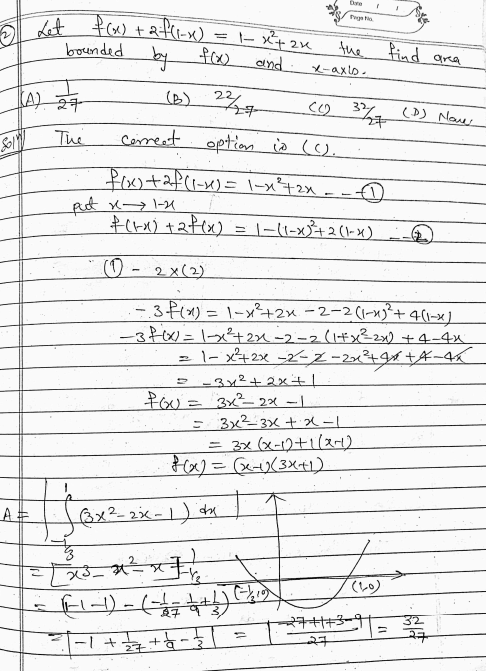 Date / /
Page No.
② Let f(x) + 2f(1-x) = 1 - x²+2x the find area
bounded by f(x) and x-axis.
(A) 1/27 (B) 22/27 (C) 32/27 (D) None
Solⁿ The correct option is (C).
f(x)+2f(1-x) = 1-x²+2x ---①
put x→1-x
f(1-x) +2f(x) = 1-(1-x)²+2(1-x) --②
(1) - 2×(2)
-3f(x) = 1-x²+2x -2-2(1-x)²+4(1-x)
-3f(x) = 1-x²+2x -2-2(1+x²-2x) +4-4x
= 1-x²+2x -2-2-2x²+4x+4-4x
= -3x²+2x+1
f(x) = 3x²-2x-1
= 3x²-3x+x-1
= 3x(x-1)+1(x-1)
f(x) = (x-1)(3x+1)
A = | ∫_{-1/3}^{1} (3x²-2x-1) dx |
= [x3 - x² - x]_{-1/3}^{1}
= (1-1-1) - (-1/27 - 1/9 + 1/3) (-1/3,0) (1,0)
= |-1 + 1/27 + 1/9 - 1/3| = |-27+1+3-9/27| = 32/27